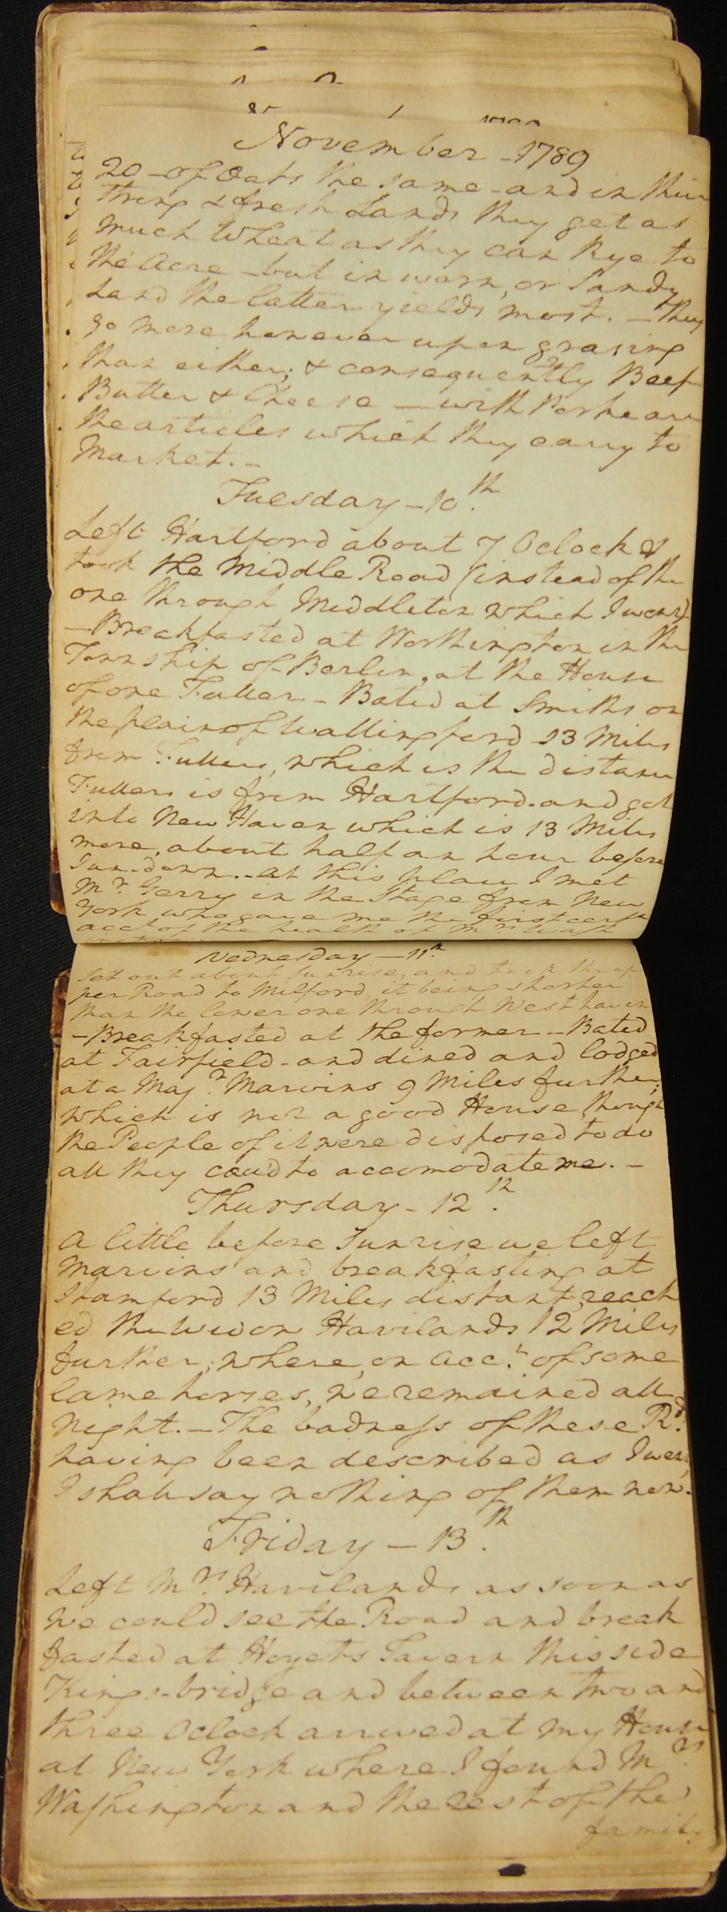 November - 1789
20 - of Oats the same - and in this
strong & fresh Lands they get as
much Wheat as they can Rye to
the Acre - but in worn, or Sandy
Land the latter yields most. - They
go more however upon grasing
than either; & consequently Beef
Butter & Cheese - with Porke are
the articles which they carry to
Market. -
Tuesday - 10th.
Left Hartford about 7 Oclock &
took the Middle Road (instead of the
one through Middleton which I went)
- Breakfasted at Worthington in the
Township of Berlin, at the House
of one Fuller - Bated at Smiths on
the plains of Wallingford 13 Miles
from Fullers, which is the distance
Fullers is from Hartford - and got
into New Haven which is 13 Miles
more, about half an hour before
Sun-down. - At this place I met
Mr. Gerry in the Stage from New
York who gave me the first certn.
acct of the health of Mrs. Wash
Wednesday - 11th.
Set out about Sunrise, and took the up
per Road to Milford, it being shorter
than the lower one through West haven
- Breakfasted at the former - Bated
at Fairfield - and dined and lodged
at a Majr. Marvins 9 Miles further;
which is not a good House, though
the People of it were disposed to do
all they coud to accomodate me. -
Thursday - 12th.
A little before Sunrise we left
Marvins and breakfasting at
Stamford 13 Miles distant, reach
ed the Widow Havilands 12 Miles
further; where, on acct. of some
lame horses, we remained all
Night. - The badness of these Rds.
having been described as I went,
I shall say nothing of them now.
Friday - 13th.
Left Mrs. Havilands as soon as
we could see the Road and break
fasted at Hoyets Tavern this side
Kings-bridge and between two and
three Oclock arrived at my House
at New York where I found Mrs.
Washington and the rest of the
family